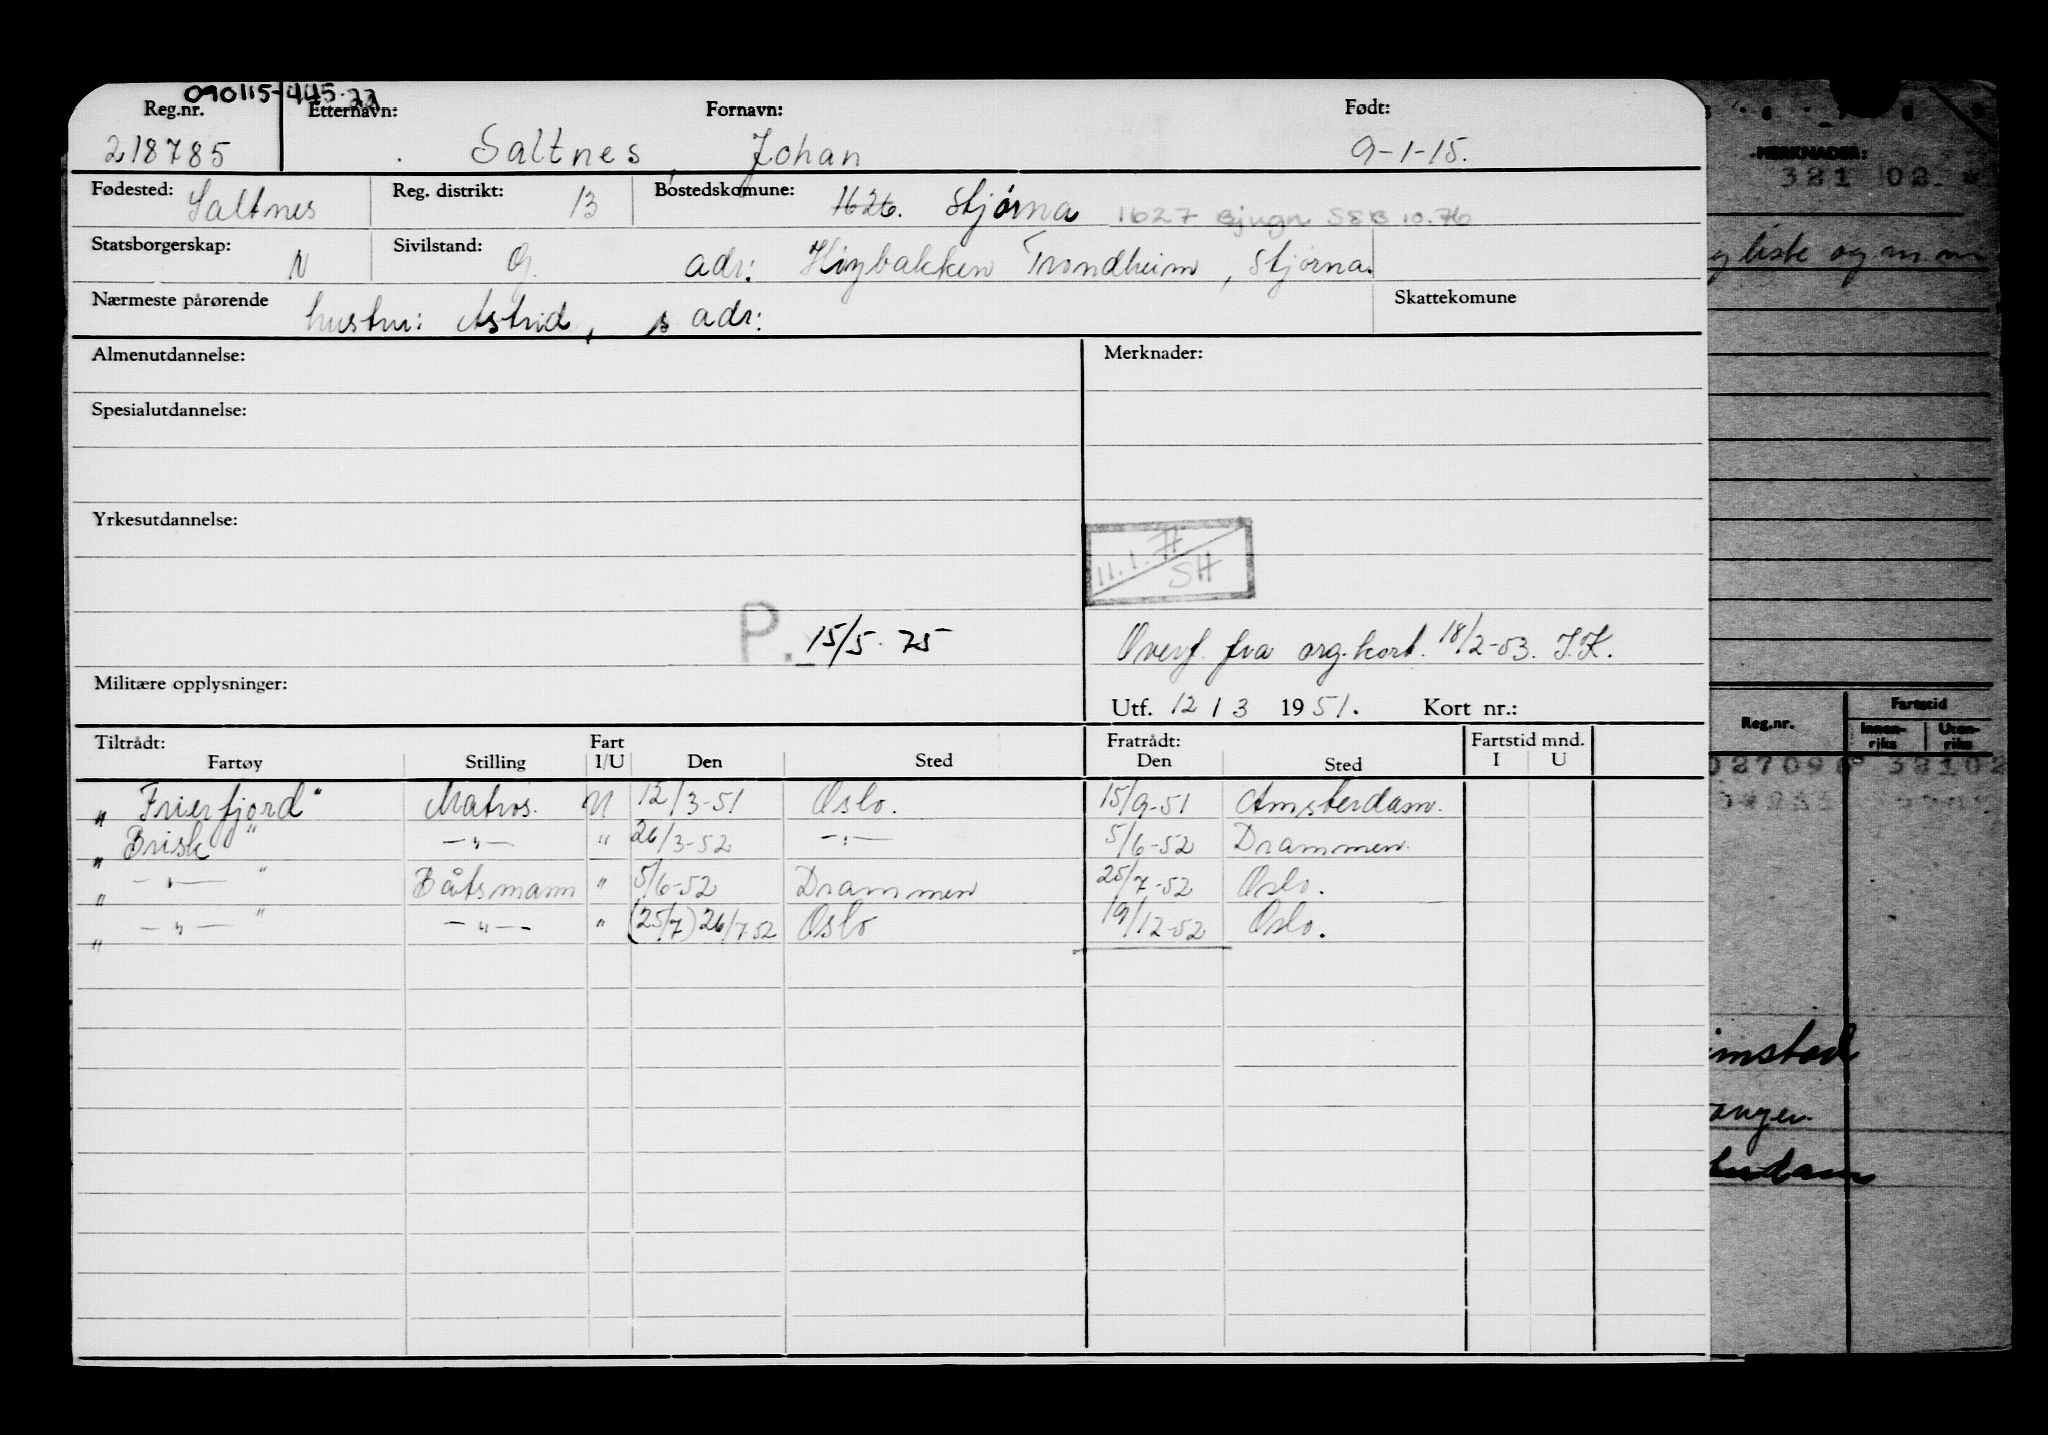 090115-445.22
Reg.nr. Etternavn: Fornavn: Født:
218785 Saltnes Johan 9-1-15.
Fødested: Saltnes Reg. distrikt: 13 Bostedskomune: 1626. Stjørna 1627 Bjugn SSB 10.76
Statsborgerskap: N Sivilstand: G. adr: Høybakken Trondheim, Stjørna.
Nærmeste pårørende hustru: Astrid, s adr: Skattekomune
Almenutdannelse: Merknader:
Spesialutdannelse:
Yrkesutdannelse:
11.1.77 SH
P. 15/5. 75
Overf. fra org.kort. 18/2-53. J.K.
Militære opplysninger:
Utf. 12 / 3 1951. Kort nr.:
Tiltrådt: Fart Fratrådt: Fartstid mnd.
Fartøy Stilling I/U Den Sted Den Sted I U
„ Frierfjord" Matros. U 12/3-51 Oslo. 15/9-51 Amsterdam.
„ Brisk " —"— " 26/3-52 —"— 5/6-52 Drammen.
„ —"— " Båtsmann " 5/6-52 Drammen 25/7-52 Oslo.
„ —"— " —"— " (25/7) 26/7 52 Oslo 19/12-52 Oslo.
MERKNADER:
321 02
liste og
Reg.nr. Fartstid
Innen-riks Uten-riks
32102